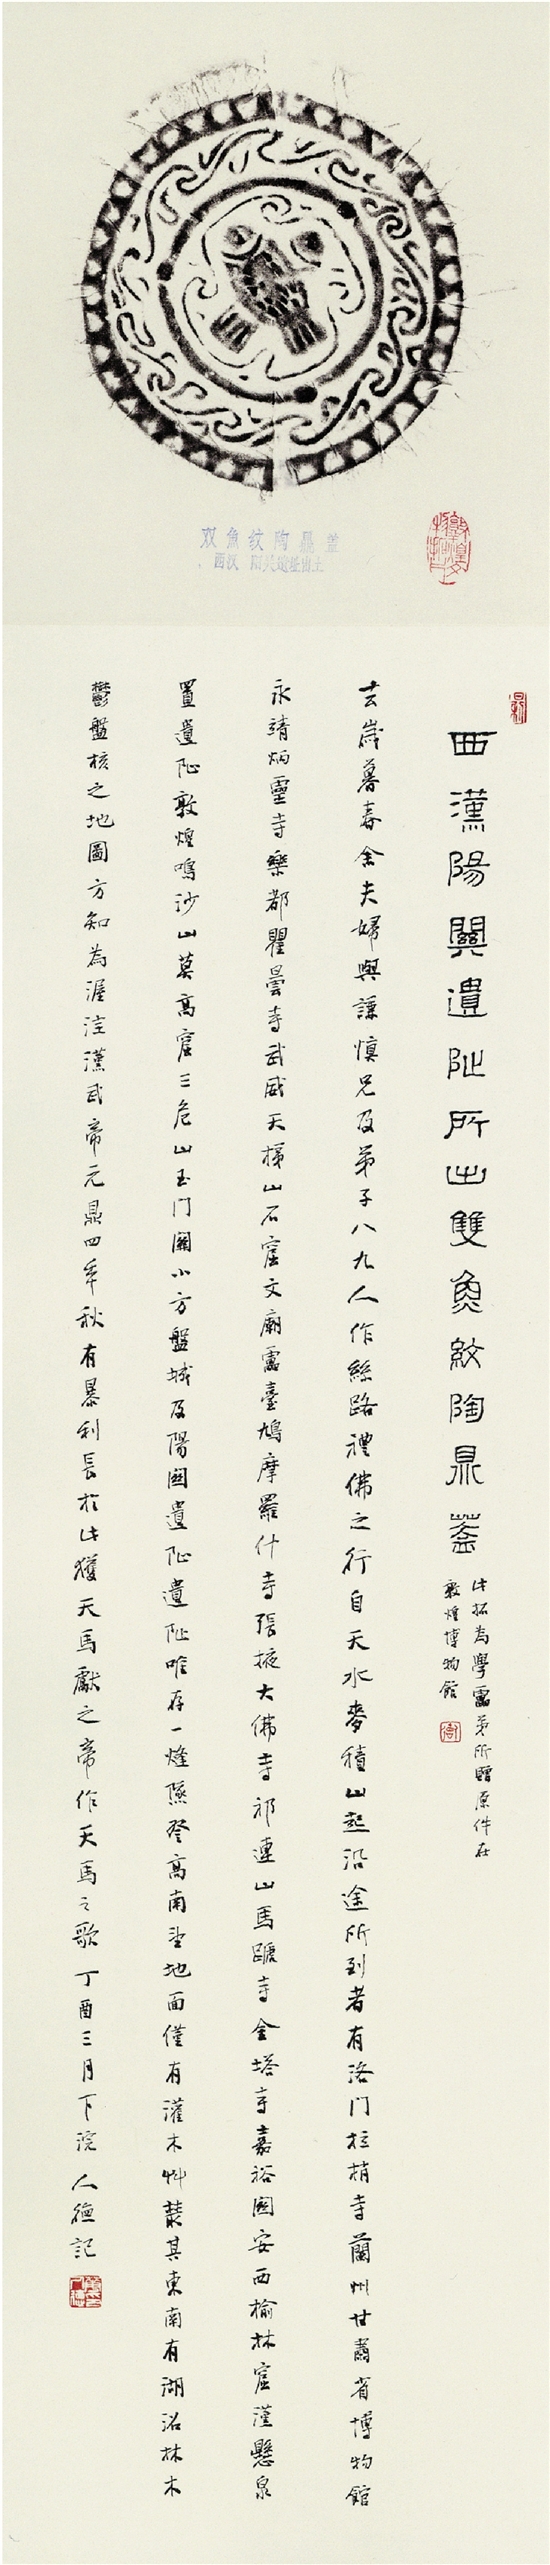 双魚紋陶鼎盖
西汉 阳关遗址出土
西漢陽關遺阯所出雙魚紋陶鼎蓋
此拓為學靁弟所贈原件在
敦煌博物館
去歲暮春余夫婦與謙慎兄及弟子八九人作絲路禮佛之行自天水麥積山起沿途所到者有洛門拉梢寺蘭州甘肅省博物館
永靖炳靈寺樂都瞿曇寺武威天梯山石窟文廟靁臺鳩摩羅什寺張掖大佛寺祁連山馬蹏寺金塔寺嘉裕關安西榆林窟漢懸泉
置遺阯敦煌鳴沙山莫高窟三危山玉门關小方盤城及陽關遺阯遺阯唯存一燧隧登高南望地面僅有灌木艸叢其東南有湖沼林木
鬱盤核之地圖方知為渥洼漢武帝元鼎四年秋有暴利長於此獲天馬獻之帝作天馬之歌丁酉三月下浣人德記